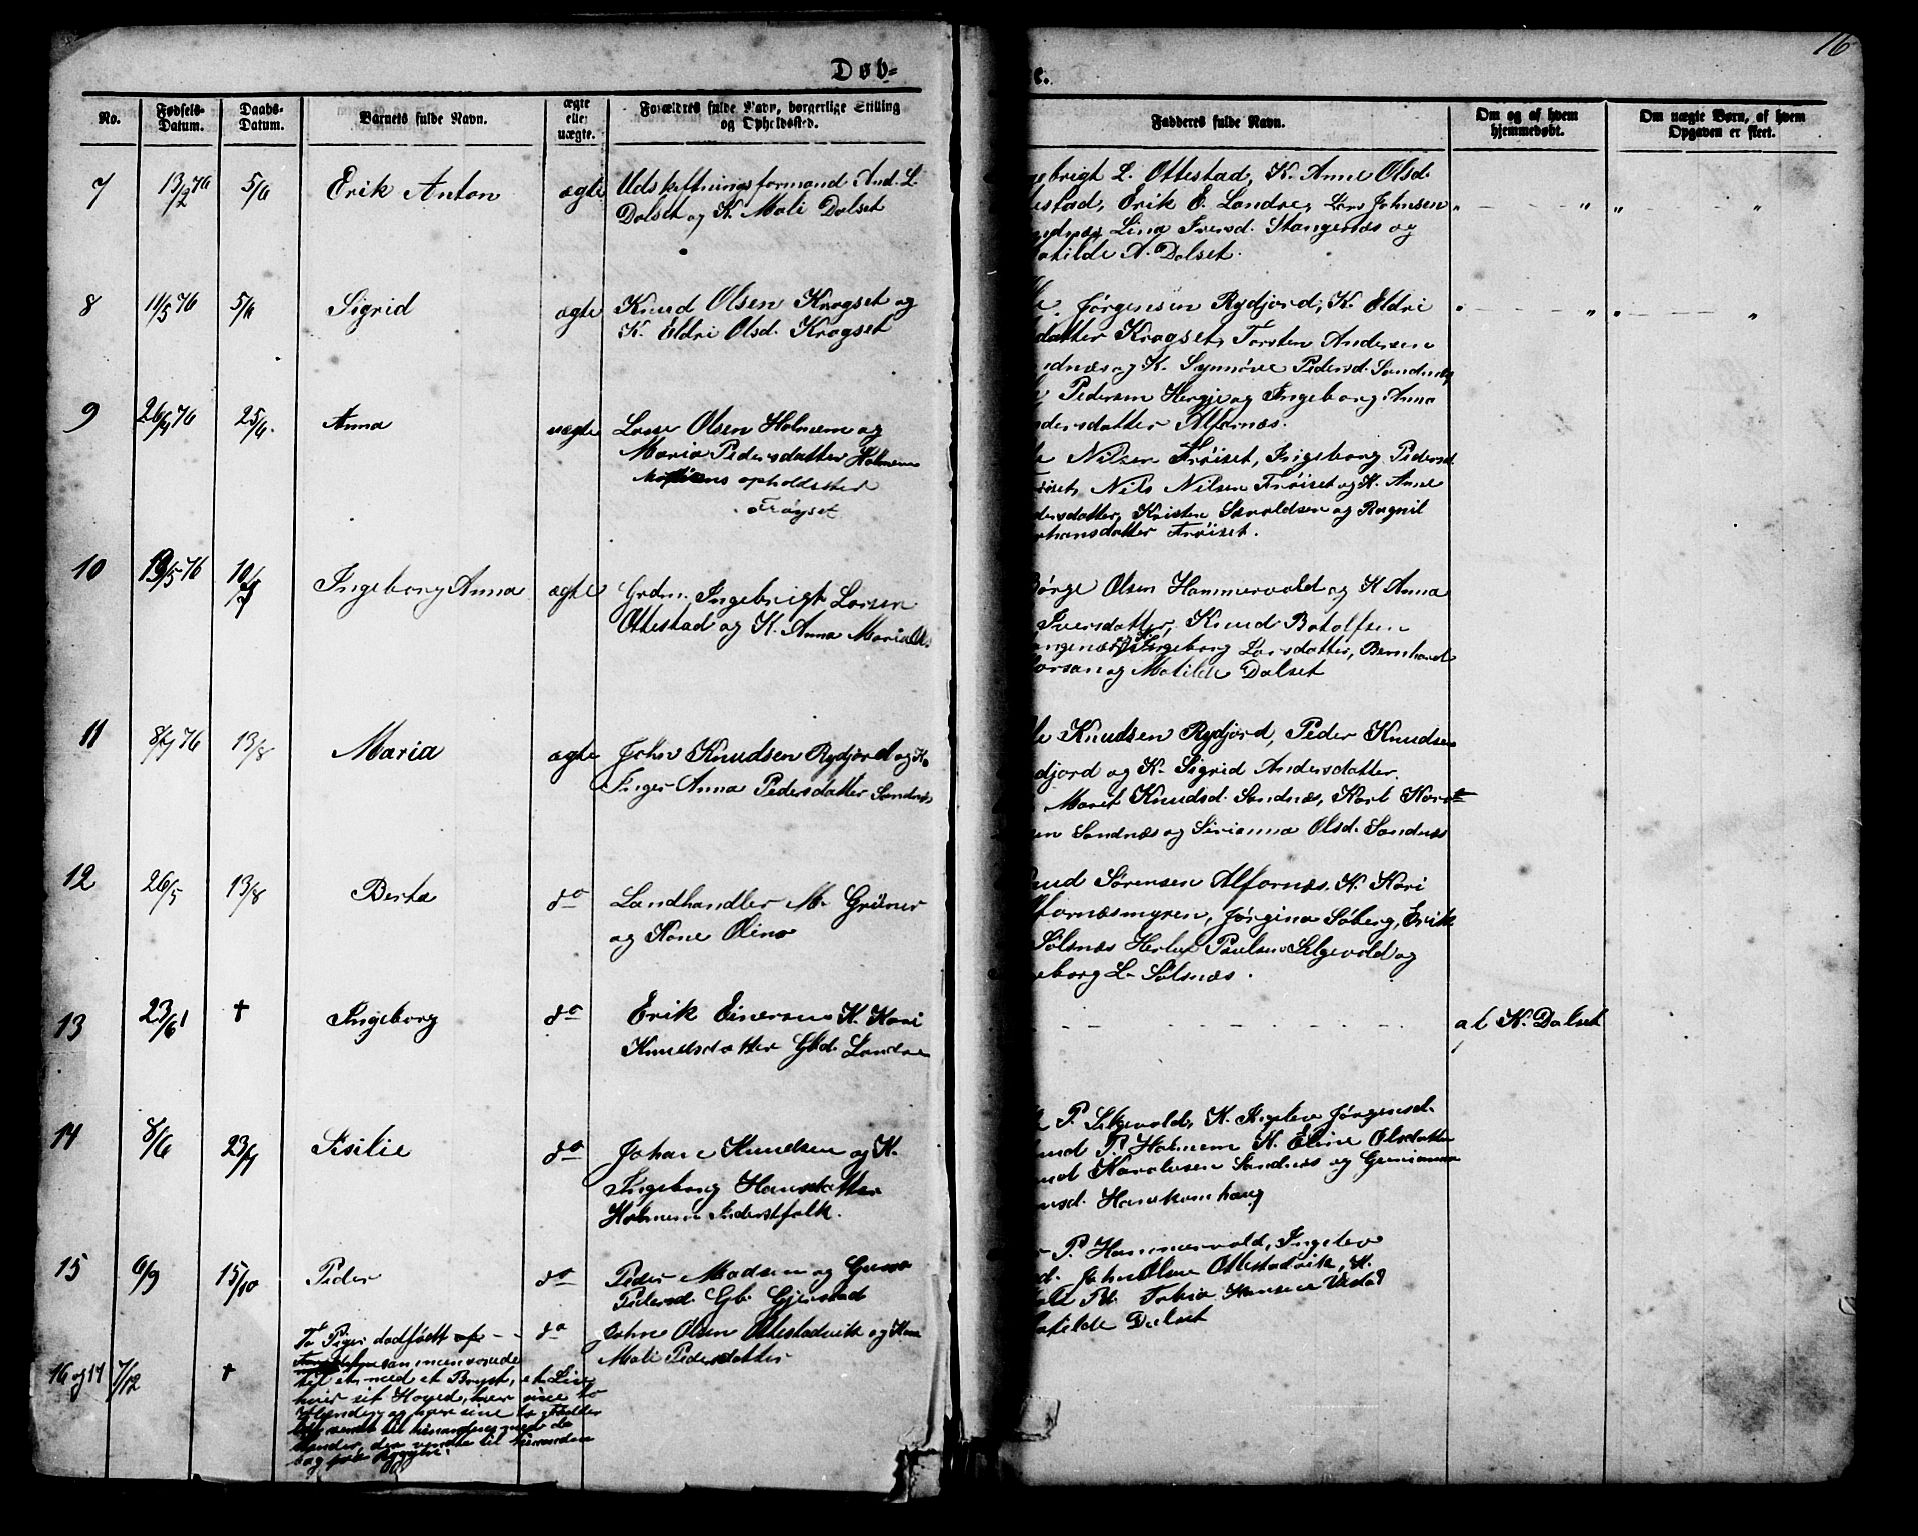 16
Døb=
e.
No.
Fødsels-
Datum.
Daabs-
Datum.
Barnets fulde Navn.
ægte
eller
uægte.
Forældres fulde Navn, borgerlige Stilling
og Opholdssted.
Fadderes fulde Navn.
Om og af hvem
hjemmedøbt.
Om uægte Børn, af hvem
Opgaven er skeet.
7
13/2 76
5/6
Erik Anton
ægte
Udskiftningsformand And. L.
Dalset og K. Mali Dalset
gebrigt L. Ottestad, K. Anne Olsd.
testad, Erik E. Landre, Lars Johnsen
ndnæs Lina Iversd. Stangenæs og
atilde A. Dalset.
8
11/5 76
5/6
Sigrid
ægte
Knud Olsen Kragset og
K. Eldri Olsd. Kragset
Jørgensen Rydjord, K. Eldri
datter Kragset, Torsten Andersen
ndnæs og K. Synnöve Pedersd. Sandnæs
Pedersen Hergje og Ingeborg Anna
ndersdatter Alfarnæs.
9
26/4 76
25/6.
Anna
uægte
Lasse Olsen Holmem og
Maria Pedersdatter Holmem
opholdssted
Frøyset
Nilsen Fröiset, Ingeborg Pedersd.
öiset, Nils Nilsen Fröiset og K. Anne
dersdatter, Kristen Haraldsen og Ragnil
hansdatter Fröiset.
10
19/5 76
10/7
Ingeborg Anna
ægte
Grdm. Ingebrigt Larsen
Ottestad og K. Anna Maria Ols
Børge Olsen Hammervold og K. Anna
Iversdatter, Knud Botolfsen
angenæs og K. Ingeborg Larsdatter, Bernhard
Larsen og Matilde Dalset
11
8/7 76
13/8
Maria
ægte
John Knudsen Rydjord og K.
Inger Anna Pedersdatter Sandnæs
le Knudsen Rydjord, Peder Knudsen
djord og K. Sigrid Andersdatter.
Marit Knudsd. Sandnæs, Karl Kars
sen Sandnæs og Serianna Olsd. Sandnæs
12
26/5
13/8
Berta
do
Landhandler M. Grüner
og Kone Olina
nud Sørensen Alfarnæs. K. Kari
lfarnæsmyren, Jørgina Søberg, Erik
Sølsnæs Herlof Paulsen Selgevold og
geborg L. Sølsnæs.
13
23/6
+
Ingeborg
do
Erik Einersen K. Kari
Knudsdatter Gbd. Landre
af K. Dalset
14
8/6
23/7
Sisilie
do
Johan Knudsen og K.
Ingeborg Hansdatter
Holmem Inderstfolk.
P. Selgevold, K. Ingelev Jørgensd.
nud P. Holmem K. Eline Olsdatter
nd Karolusen Sandnæs og Gurianna
nsd. Hanekamhaug
15
6/9
15/10
Peder
do
Peder Madsen og Guro
Pedersd. Gb. Gjerstad
P. Hammervold, Ingelev
d. John Olsen Ottestadvik, K.
Tobia Hansen
atilde Dalset
16 og 17
7/12
+
To Piger dødfødt
sammenvoxede
med et Bryst, et Liv,
hver sit Hoved, hver sine to
Hænder og hver sine to
til hinanden med
Hænder, der vendte til hinanden
do
John Olsen Ottestadvik og Kone
Mali Pedersdatter